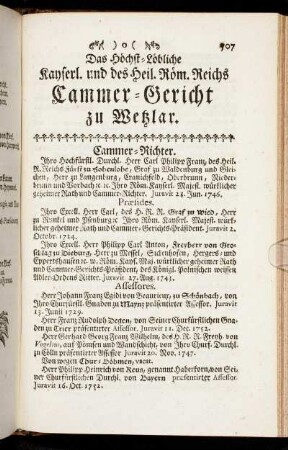 ) o (
707
Das Höchst-Löbliche
Kayserl. und des Heil. Röm. Reichs
Cammer-Gericht
zu Wetzlar.
Cammer-Richter.
Ihro Hochfürstl. Durchl. Herr Carl Philipp Franz, des Heil.
R. Reichs Fürst zu Hohenlohe, Graf zu Waldenburg und Glei-
chen, Herr zu Langenburg, Cranichfeld, Oberbrunn, Nieder-
brunn und Vorbach ꝛc. ꝛc. Ihro Röm. Kayserl. Majest. würklicher
geheimer Rath und Cammer-Richter. Juravit 24. Jun. 1746.
Præsides.
Ihro Excell. Herr Carl, des H. R. R. Graf zu Wied, Herr
zu Runkel und Ysenburg ꝛc. Ihro Röm. Kayserl. Majest. würk-
licher geheimer Rath und Cammer-Gerichts-Präsident. Juravit 2.
Octobr. 1724.
Ihro Excell. Herr Philipp Carl Anton, Freyherr von Gros-
schlag zu Dieburg, Herr zu Messel, Eichenhofen, Hergers und
Eppertshausen ꝛc. ꝛc. Röm. Kays. Maj. würklicher geheimer Rath
und Cammer-Gerichts-Präsident, des Königl. Polnischen weissen
Adler-Ordens Ritter. Juravit 27. Aug. 1743.
Assessores.
Herr Johann Franz Egidi von Brauneicy, zu Schönbach, von
Ihro Churfürstl. Gnaden zu Maynz präsentirter Assessor. Juravit
13. Junii 1729.
Herr Franz Rudolph Degen, von Seiner Churfürstlichen Gna-
den zu Trier präsentirter Assessor. Juravit 11. Dec. 1752.
Herr Gerhard Georg Franz Wilhelm, des H. R. R. Freyh. von
Vogelius, auf Pömsen und Wandschicht, von Ihro Churf. Durchl.
zu Cölln präsentirter Assessor. Juravit 20. Nov. 1747.
Von wegen Chur-Böhmen, vac.
Herr Philipp Heinrich von Reun, genannt Haberkorn, von Sei-
ner Churfürstlichen Durchl. von Bayern präsentirter Assessor
Juravit 16. Oct. 1752.